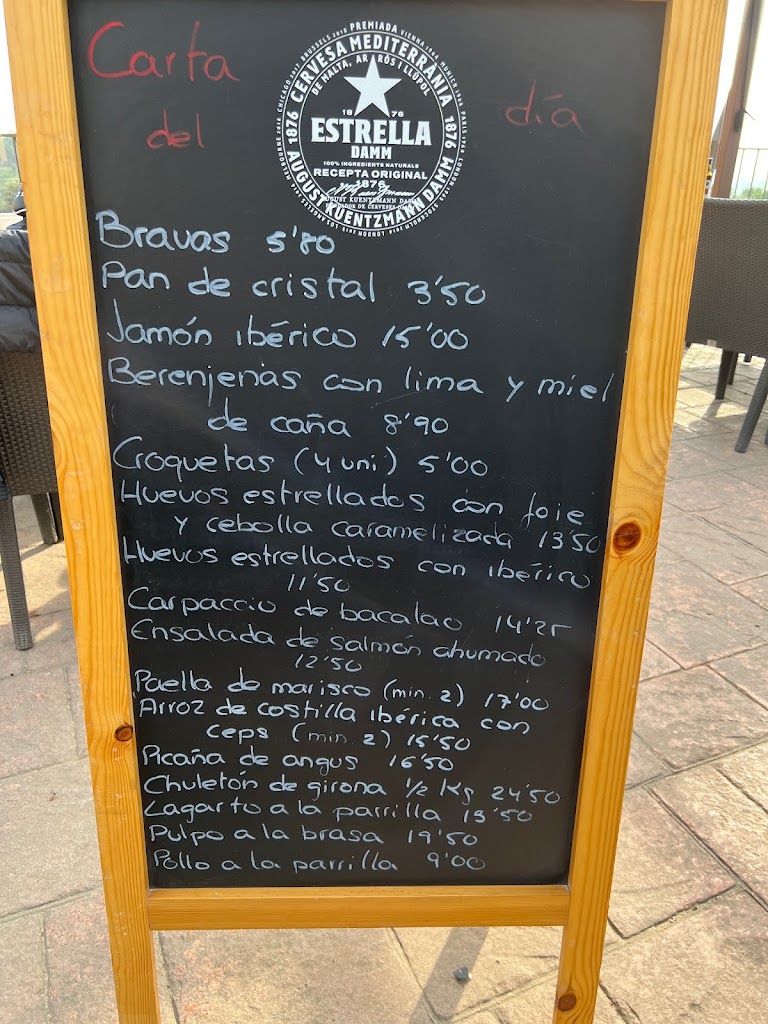 Carta
del
día
PREMIADA
CERVESA MEDITERRÀNIA
DE MALTA, ARRÒS I LLÚPOL
1876
1876
18 76
ESTRELLA
DAMM
100% INGREDIENTS NATURALS
RECEPTA ORIGINAL
1876
AUGUST KUENTZMANN DAMM
AUGUST KUENTZMANN DAMM
Bravas 5'80
Pan de cristal 3'50
Jamón ibérico 15'00
Berenjenas con lima y miel
de caña 8'90
Croquetas (4 uni) 5'00
Huevos estrellados con foie
y cebolla caramelizada 13'50
Huevos estrellados con ibérico
11'50
Carpaccio de bacalao 14'25
Ensalada de salmón ahumado
12'50
Paella de marisco (min. 2) 17'00
Arroz de costilla ibérica con
ceps (min. 2) 15'50
Picaña de angus 16'50
Chuletón de girona 1/2 Kg 24'50
Lagarto a la parrilla 13'50
Pulpo a la brasa 19'50
Pollo a la parrilla 9'00